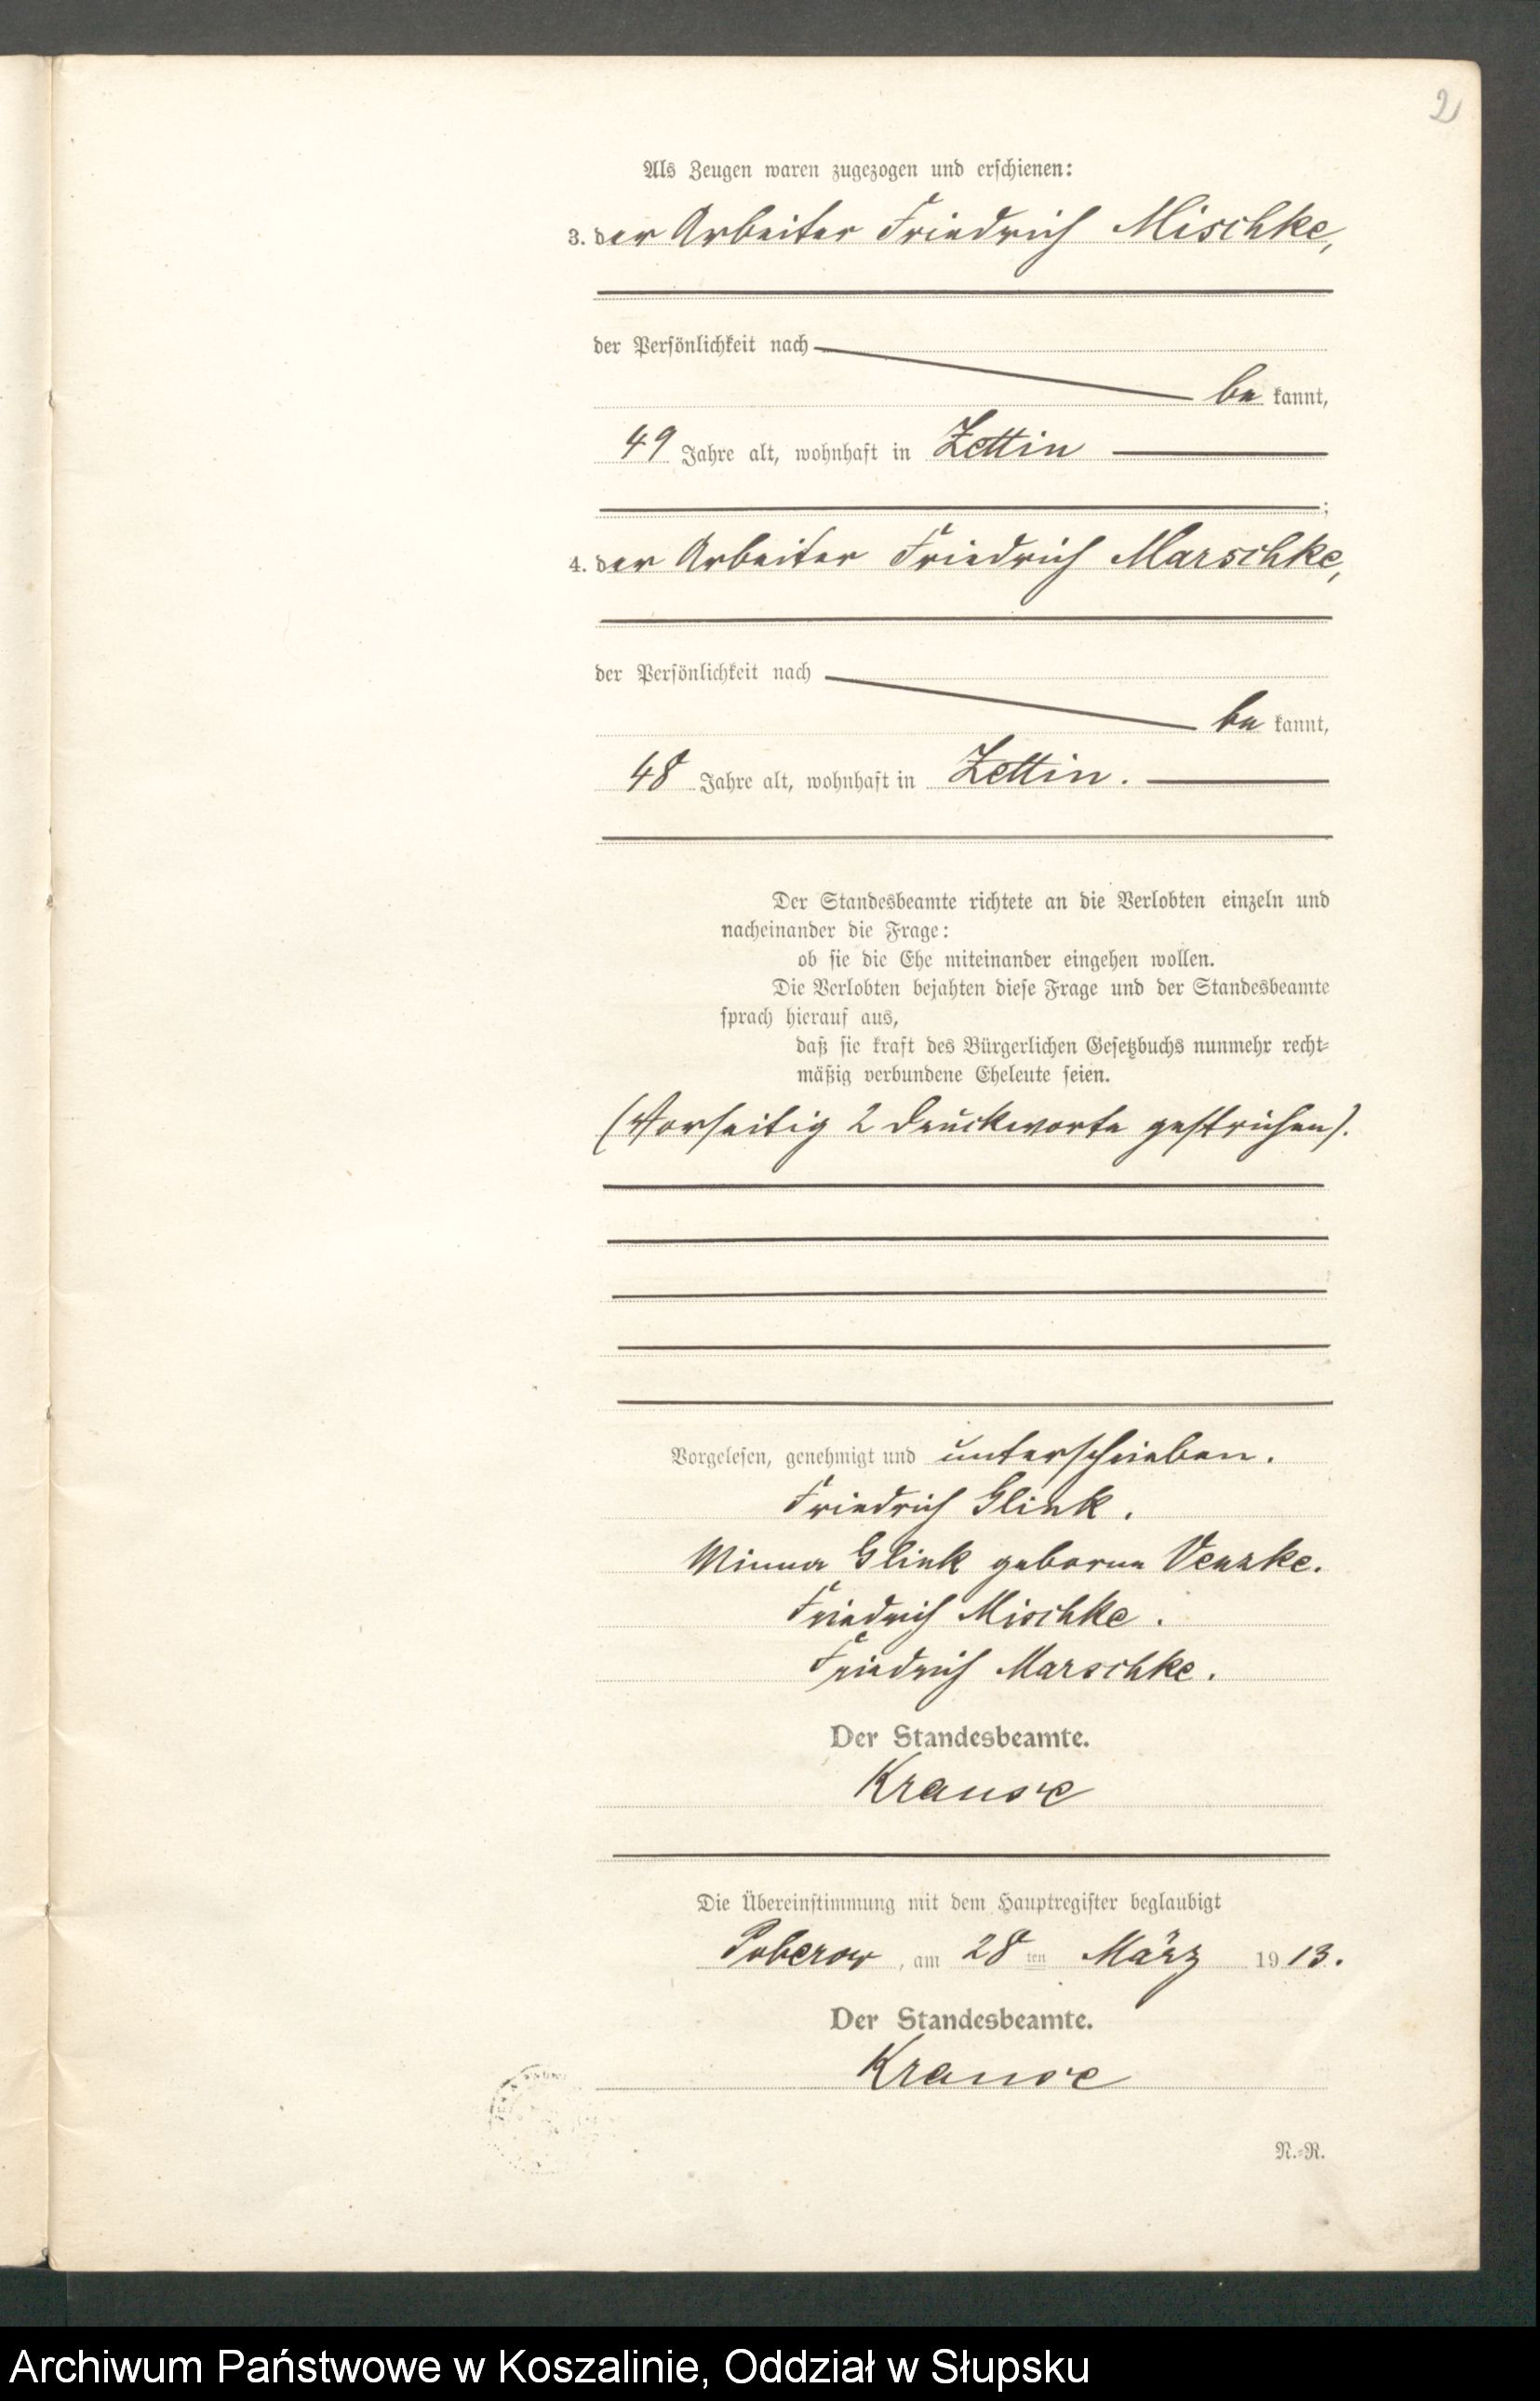 2
Als Zeugen waren zugezogen und erschienen:
3. der Arbeiter Friedrich Mischke,
der Persönlichkeit nach
be kannt,
49 Jahre alt, wohnhaft in Zettin
;
4. der Arbeiter Friedrich Marschke,
der Persönlichkeit nach
be kannt,
48 Jahre alt, wohnhaft in Zettin.
Der Standesbeamte richtete an die Verlobten einzeln und
nacheinander die Frage:
ob sie die Ehe miteinander eingehen wollen.
Die Verlobten bejahten diese Frage und der Standesbeamte
sprach hierauf aus,
daß sie kraft des Bürgerlichen Gesetzbuchs nunmehr recht-
mäßig verbundene Eheleute seien.
(Vorseitig 2 Druckworte gestrichen).
Vorgelesen, genehmigt und unterschrieben.
Friedrich Glink.
Minna Glink geborne Venzke.
Friedrich Mischke.
Friedrich Marschke.
Der Standesbeamte.
Krause
Die Übereinstimmung mit dem Hauptregister beglaubigt
Poberow, am 28 ten März 1913.
Der Standesbeamte.
Krause
N.-R.
Archiwum Państwowe w Koszalinie, Oddział w Słupsku